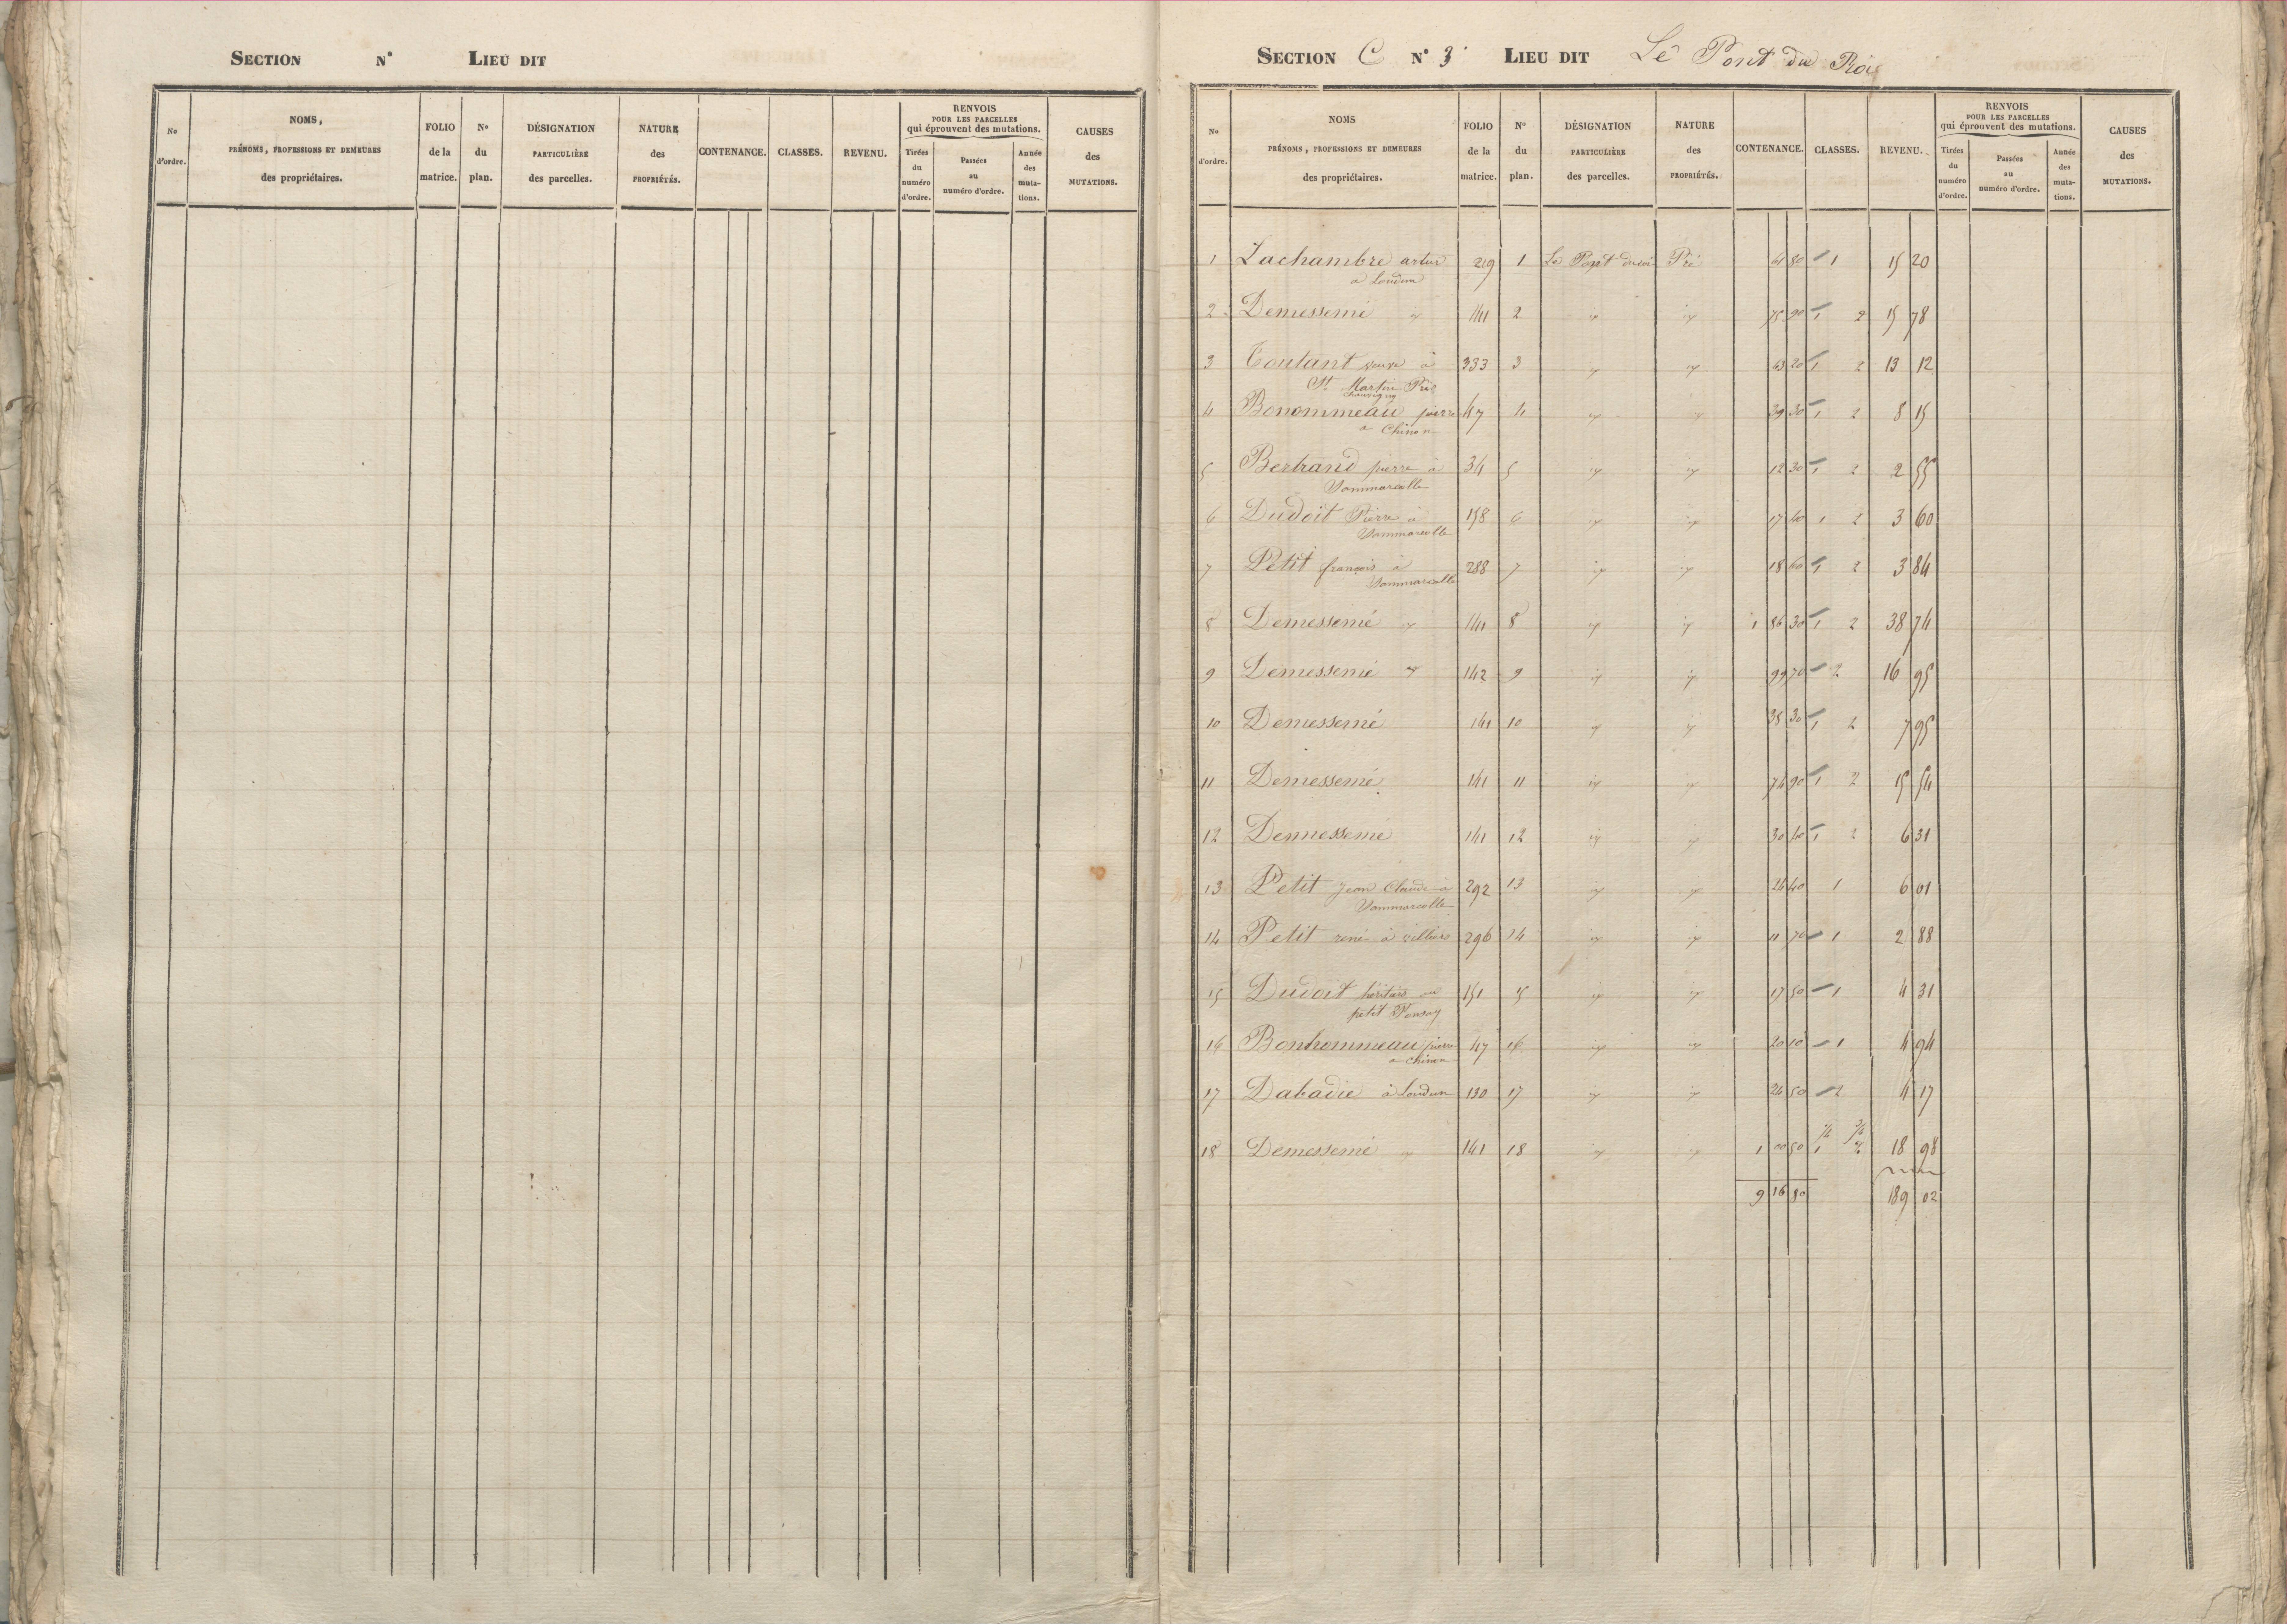 SECTION N° LIEU DIT
No d'ordre. NOMS, PRÉNOMS, PROFESSIONS ET DEMEURES des propriétaires. FOLIO de la matrice. No du plan. DÉSIGNATION PARTICULIÈRE des parcelles. NATURE des PROPRIÉTÉS. CONTENANCE. CLASSES. REVENU. RENVOIS POUR LES PARCELLES qui éprouvent des mutations. Tirées du numéro d'ordre. Passées au numéro d'ordre. Année des muta- tions. CAUSES des MUTATIONS.
SECTION C N° 3 LIEU DIT Le Pont du Roi
No d'ordre. NOMS PRÉNOMS, PROFESSIONS ET DEMEURES des propriétaires. FOLIO de la matrice. No du plan. DÉSIGNATION PARTICULIÈRE des parcelles. NATURE des PROPRIÉTÉS. CONTENANCE. CLASSES. REVENU. RENVOIS POUR LES PARCELLES qui éprouvent des mutations. Tirées du numéro d'ordre. Passées au numéro d'ordre. Année des muta- tions. CAUSES des MUTATIONS.
1 Lachambre artur 219 1 Le Pont Pré 61 80 1 15 20
a Loudun
2 Demessemé 141 2 75 90 1 2 15 78
3 Toutant veuve à 333 3 63 20 1 2 13 12
St Martin
4 Bonommeau pierre 47 4 39 30 1 2 8 15
a Chinon
5 Bertrand pierre à 34 5 12 30 1 2 2 55
Sammarcolle
6 Dudoit Pierre à 158 6 17 40 1 2 3 60
Sammarcolle
7 Petit françois à 288 7 18 60 1 2 3 84
Sammarcolle
8 Demessemé 141 8 1 86 30 1 2 38 74
9 Demessemé 142 9 99 70 2 16 95
10 Demessemé 141 10 38 30 1 2 7 95
11 Demessemé 141 11 74 90 1 2 15 54
12 Demessemé 141 12 30 40 1 2 6 31
13 Petit Jean Claude à 292 13 24 40 1 6 01
Sammarcolle
14 Petit rené à villiers 296 14 11 70 1 2 88
15 Dudoit héritiers au 151 15 17 50 1 4 31
petit
16 Bonhommeau pierre 47 16 20 10 1 4 94
a Chinon
17 Dabadie à Loudun 130 17 24 50 2 4 17
18 Demessemé 141 18 1 00 50 1 2 18 98
9 16 80 189 02